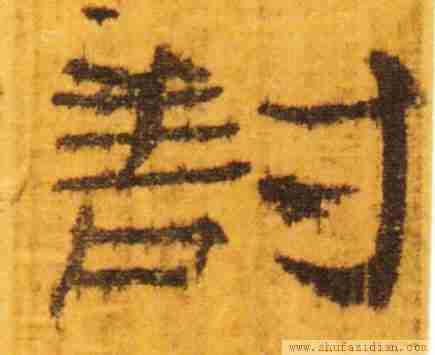 對
www.shufazidian.com